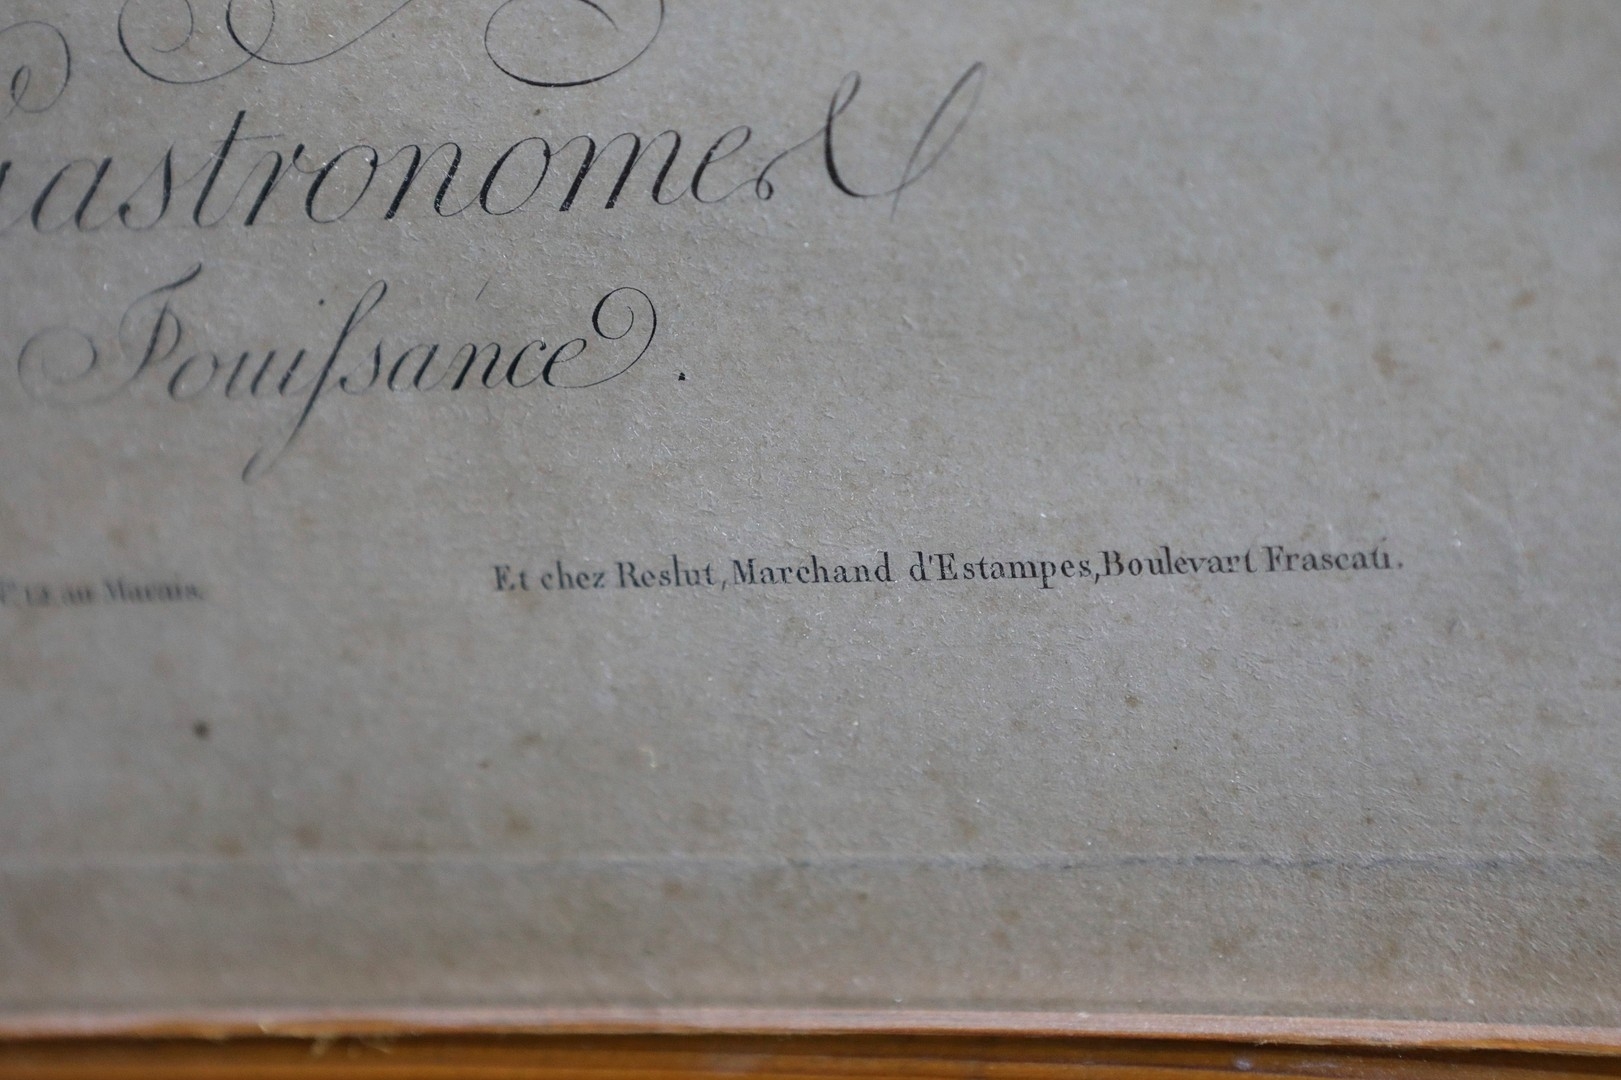 Gastronome
Jouissance.
au Marais.
Et chez Reslut, Marchand d'Estampes, Boulevart Frascati.